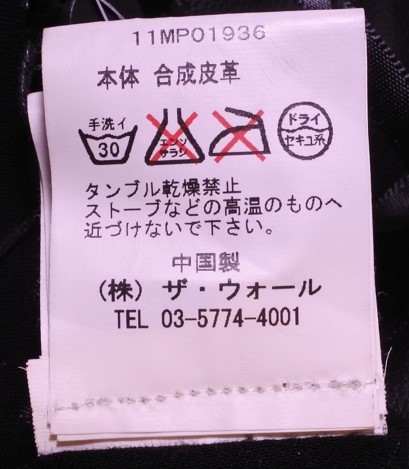 11MPO1936
本体 合成皮革
手洗イ
30
エンソ
サラシ
ドライ
セキユ系
タンブル乾燥禁止
ストーブなどの高温のものへ
近づけないで下さい。
中国製
(株) ザ・ウォール
TEL 03-5774-4001